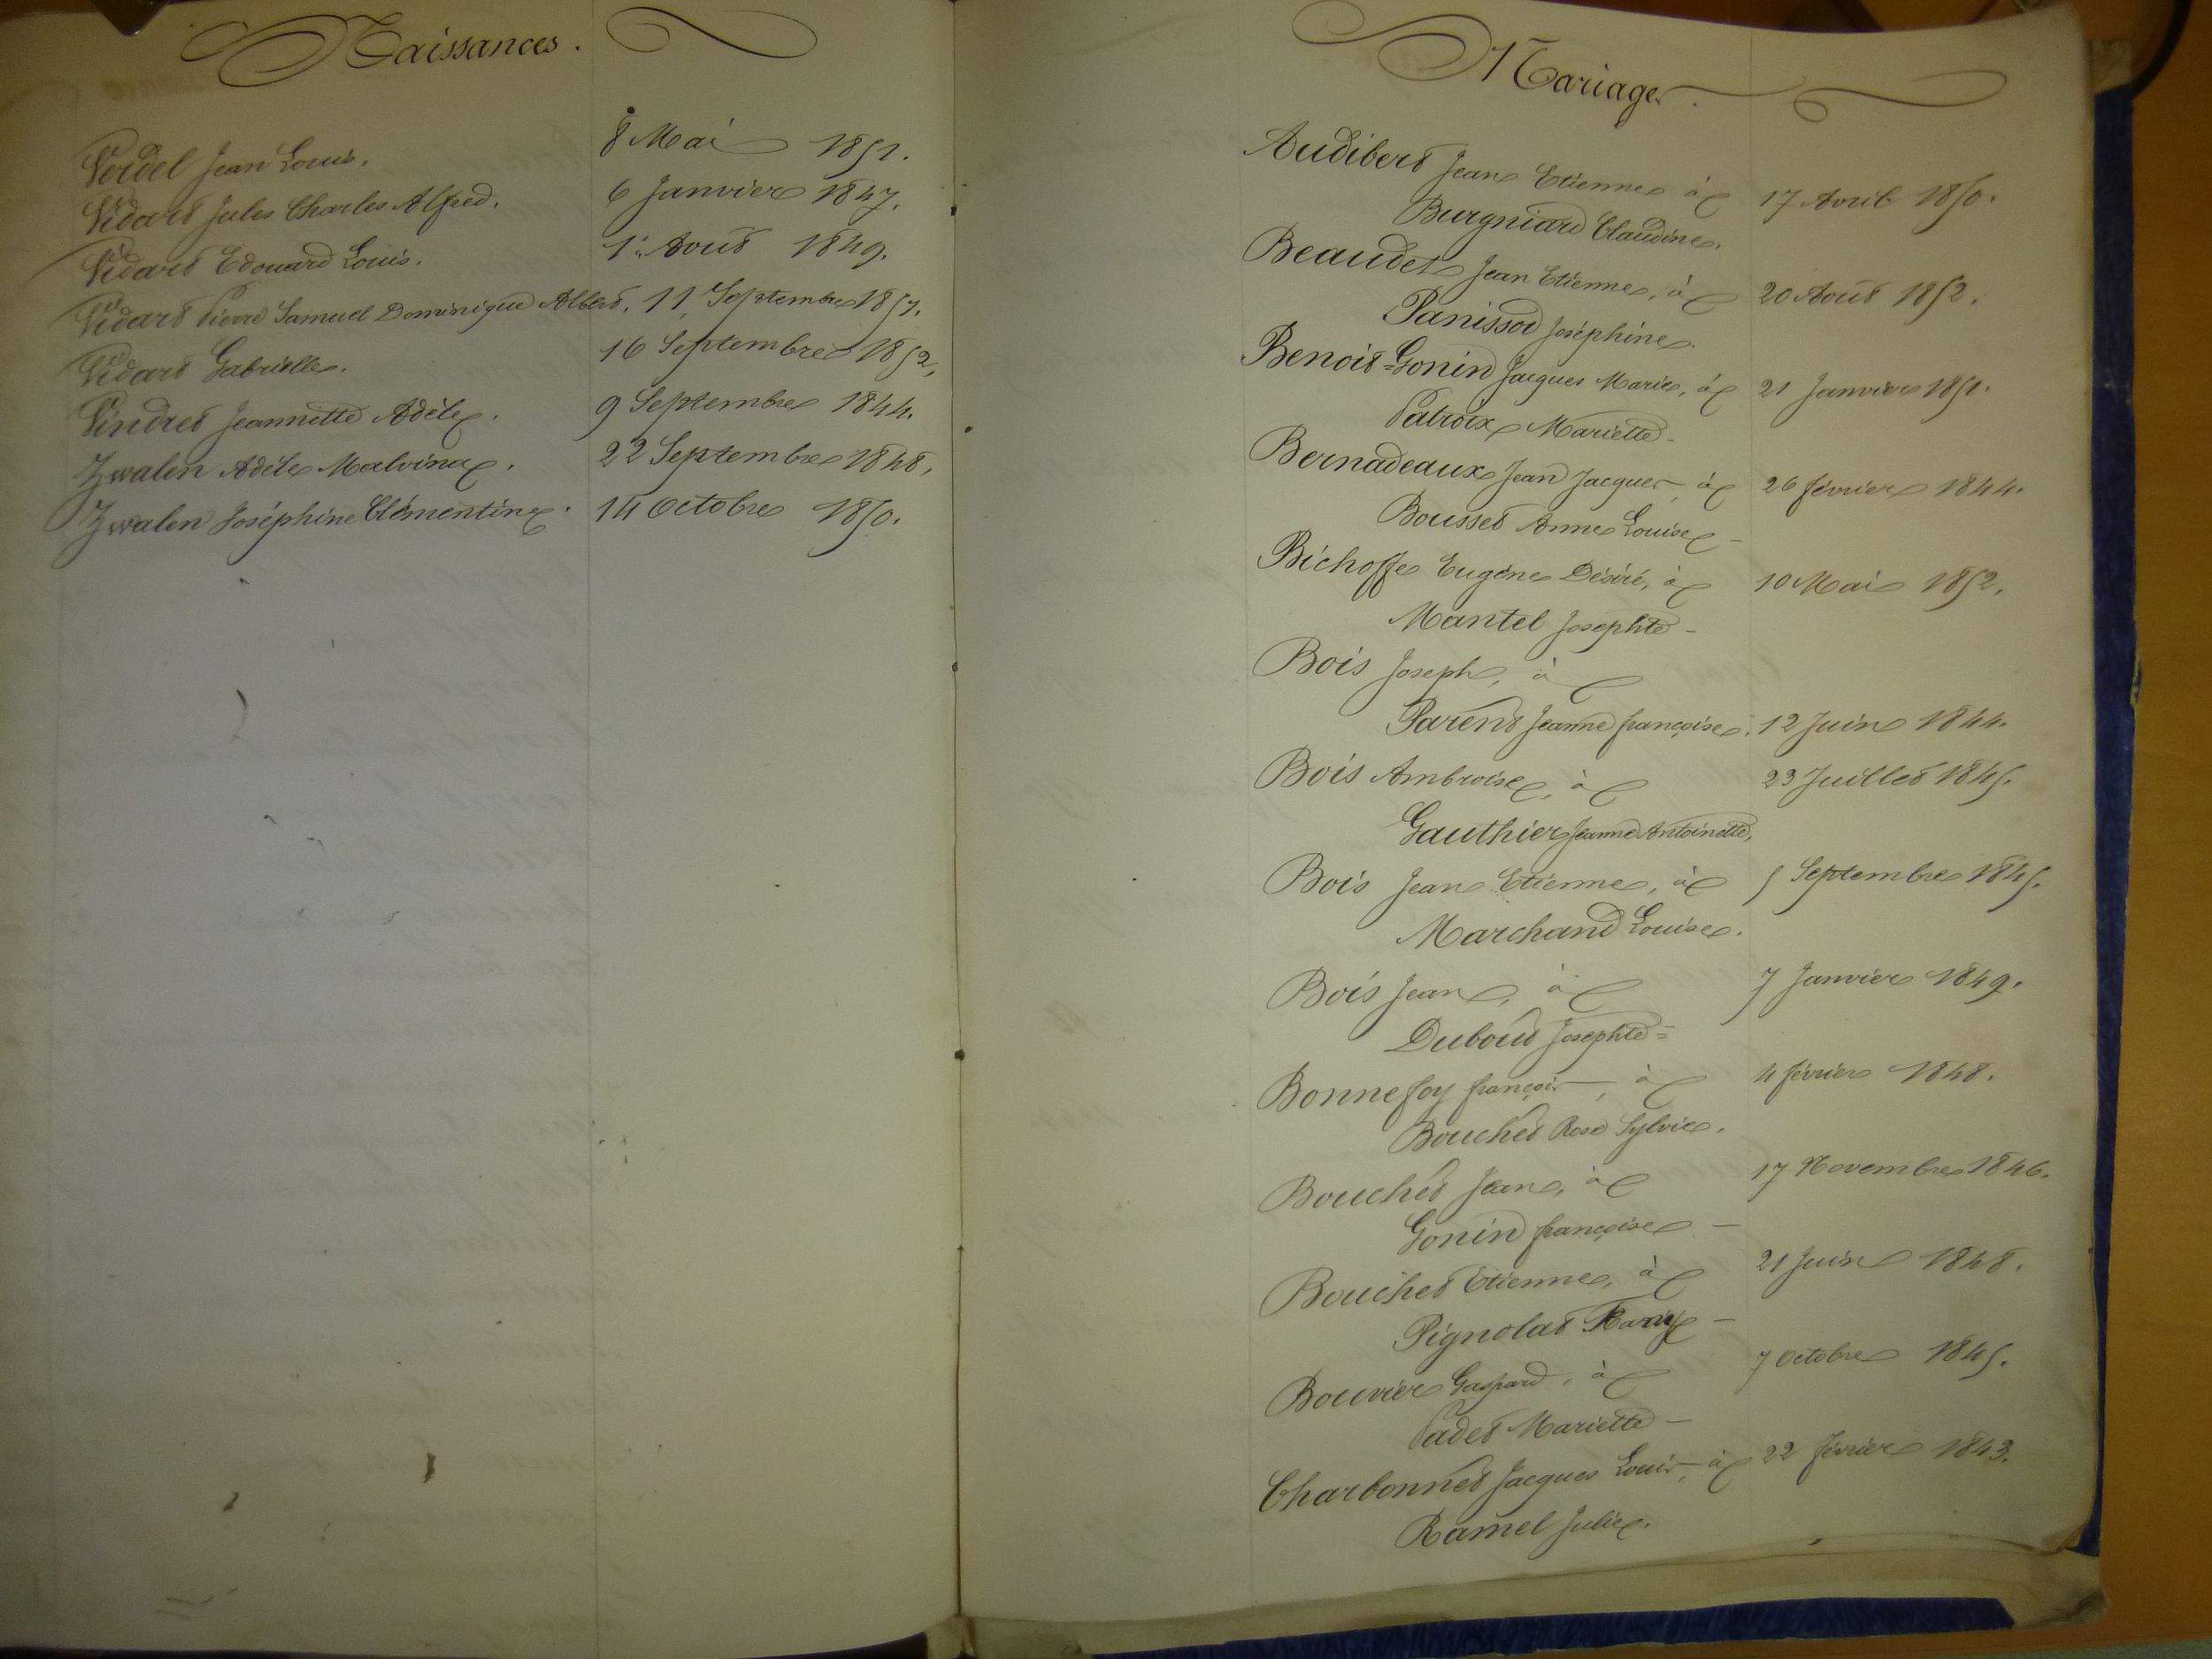 Naissances.
Verdel Jean Louis. 8 Mai 1851.
Vidart Jules Charles Alfred. 6 Janvier 1847.
Vidart Edouard Louis. 1er Août 1849.
Vidart Pierre Samuel Dominique Albert. 11 Septembre 1857.
Vidart Gabrielle. 16 Septembre 1852.
Vindret Jeannette Adèle. 9 Septembre 1844.
Zwalen Adèle Malvina. 22 Septembre 1848.
Zwalen Joséphine Clémentine. 14 Octobre 1850.
Mariages.
Audibert Jean Etienne à 17 Avril 1850.
Burgniard Claudine.
Beaudet Jean Etienne, à 20 Août 1852.
Panissod Joséphine.
Benoit=Gonin Jacques Marie, à 21 Janvier 1851.
Patroix Mariette-
Bernadeaux Jean Jacques, à 26 février 1844.
Bousset Anne Louise-
Bichoffe Eugène Désiré, à 10 Mai 1852.
Mantel Josephte-
Bois Joseph, à
Parent Jeanne françoise. 12 Juin 1844.
Bois Ambroise, à 23 Juillet 1845.
Gauthier Jeanne Antoinette,
Bois Jean Etienne, à 5 Septembre 1845.
Marchand Louise.
Bois Jean, à 7 Janvier 1849.
Duboud Josephte=
Bonnefoy françois, à 4 février 1848.
Bouchet Rose Sylvie.
Bouchet Jean, à 17 Novembre 1846.
Gonin françoise-
Bouchet Etienne, à 21 Juin 1848.
Pignolat -
Bouvier Gaspard, à 7 Octobre 1845.
Vadet Mariette-
Charbonnet Jacques Louis, à 22 février 1843.
Ramel Julie.